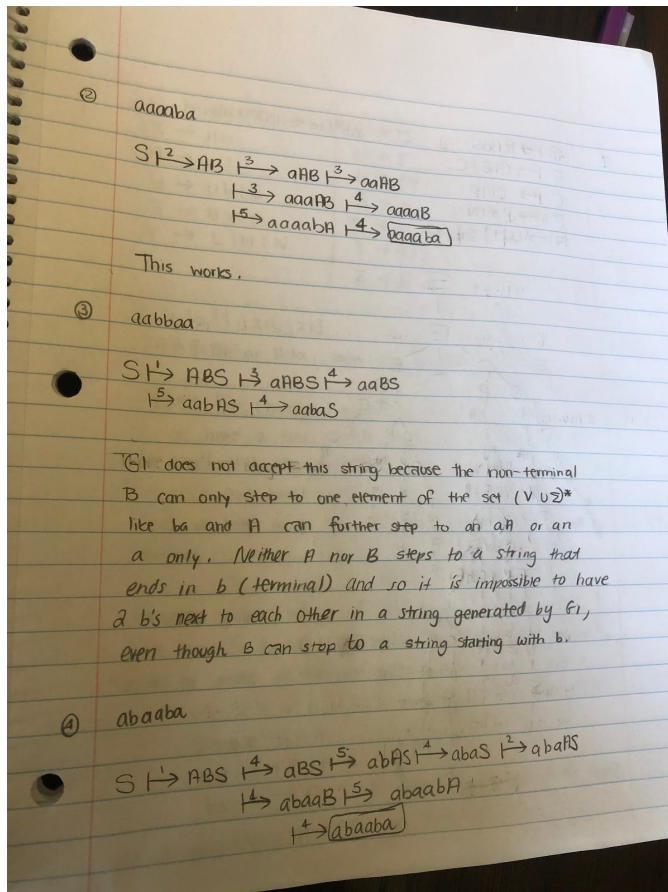 ② aaaaba
S ⊢²→ AB ⊢³→ aAB ⊢³→ aaAB
⊢³→ aaaAB ⊢⁴→ aaaaB
⊢⁵→ aaaabA ⊢⁴→ aaaaba
This works.
③ aabbaa
S ⊢¹→ ABS ⊢³→ aABS ⊢⁴→ aaBS
⊢⁵→ aabAS ⊢⁴→ aabaS
G1 does not accept this string because the non-terminal
B can only step to one element of the set (V ∪ Σ)*
like ba and A can further step to an aA or an
a only. Neither A nor B steps to a string that
ends in b (terminal) and so it is impossible to have
2 b's next to each other in a string generated by G1,
even though B can step to a string starting with b.
④ abaaba
S ⊢¹→ ABS ⊢⁴→ aBS ⊢⁵→ abAS ⊢⁴→ abaS ⊢²→ abaAS
⊢⁴→ abaaB ⊢⁵→ abaabA
⊢⁴→ abaaba